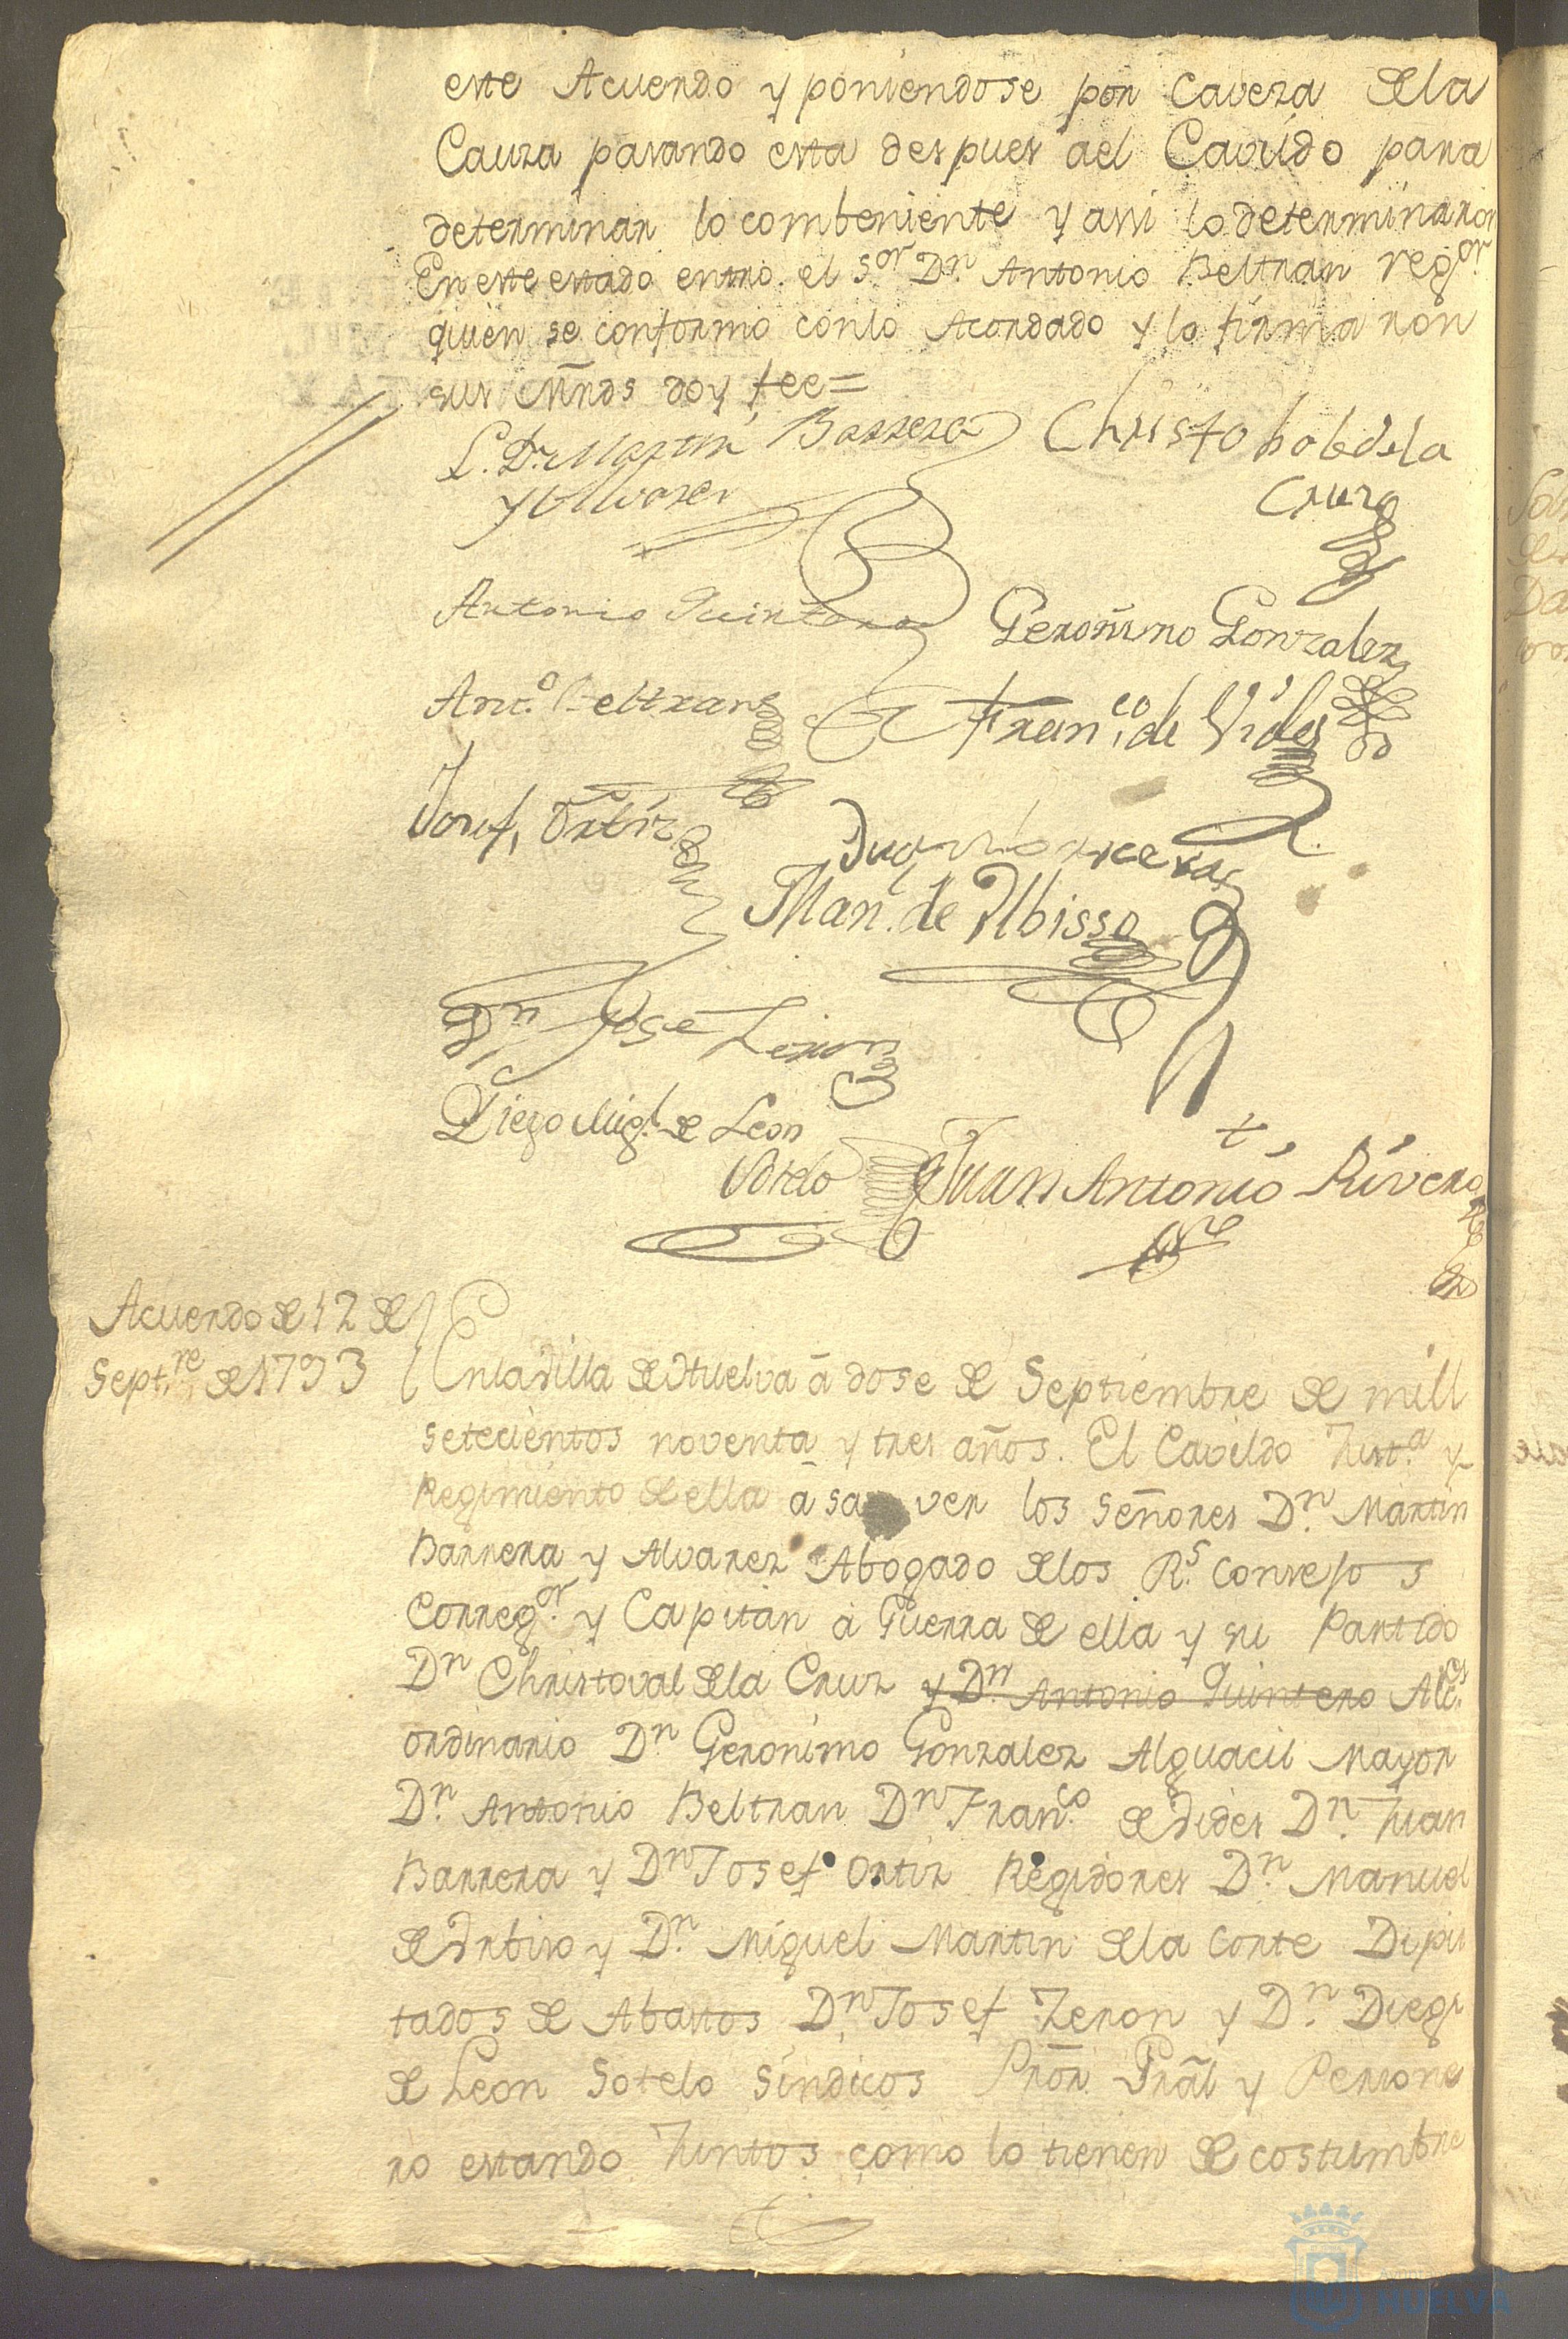 este Acuerdo y poniendose por Caveza dela
Cauza pasando esta despues ael Cavildo para
determinar lo combeniente y assi lo determinaron
En este estado entro el S.or D.n Antonio Beltran reg.or
quien se conformo con lo Acordado y lo firmaron
sus Mrds doy fee=
L. D.n Martin Barrera
y Alvarez
Christobal de la
Cruz
Antonio Quintero
Geronimo Gonzalez
Ant.o Beltran
Fran.co de Vides
Josef Ortiz
Juan Barrera
Man. de Urbisso
D.n Jose Zeron
Diego Mig.l de Leon
Sotelo
Juan Antonio Rivero
Acuerdo de 12 de
Sept.re de 1793
En la Villa de Huelva á dose de Septiembre de mill
setecientos noventa y tres años. El Cavildo Just.a y
Regimiento de ella á saver los Señores D.n Martin
Barrera y Alvarez Abogado de los R.s Consejos
Correg.or y Capitan á Guerra de ella y su Partido
D.n Christoval de la Cruz y D.n Antonio Quintero Alc.es
ordinario D.n Geronimo Gonzalez Alguacil Mayor
D.n Antonio Beltran D.n Fran.co de Vides D.n Juan
Barrera y D.n Josef Ortiz Regidores D.n Manuel
de Urbiso y D.n Miguel Martin de la Corte Dipu
tados de Abastos D.n Josef Zeron y D.n Diego
de Leon Sotelo Sindicos Pror. Gral y Persone
ro estando Juntos como lo tienen de costumbre
HUELVA